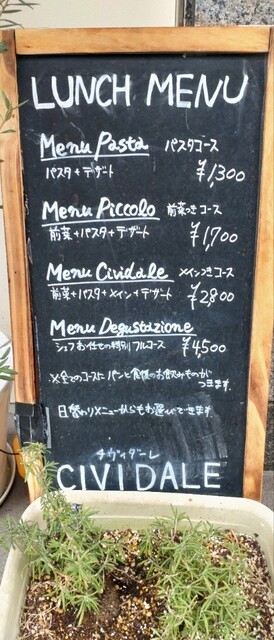 LUNCH MENU
Menu Pasta パスタコース
パスタ+デザート ¥1,300
Menu Piccolo 前菜つきコース
前菜+パスタ+デザート ¥1,700
Menu Cividale メインつきコース
前菜+パスタ+メイン+デザート ¥2,800
Menu Degustazione
シェフお任せの特別フルコース ¥4,500
※全てのコースにパンと食後のお飲みものが
つきます。
日替わりメニューからもお選びできます。
チヴィダーレ
CIVIDALE